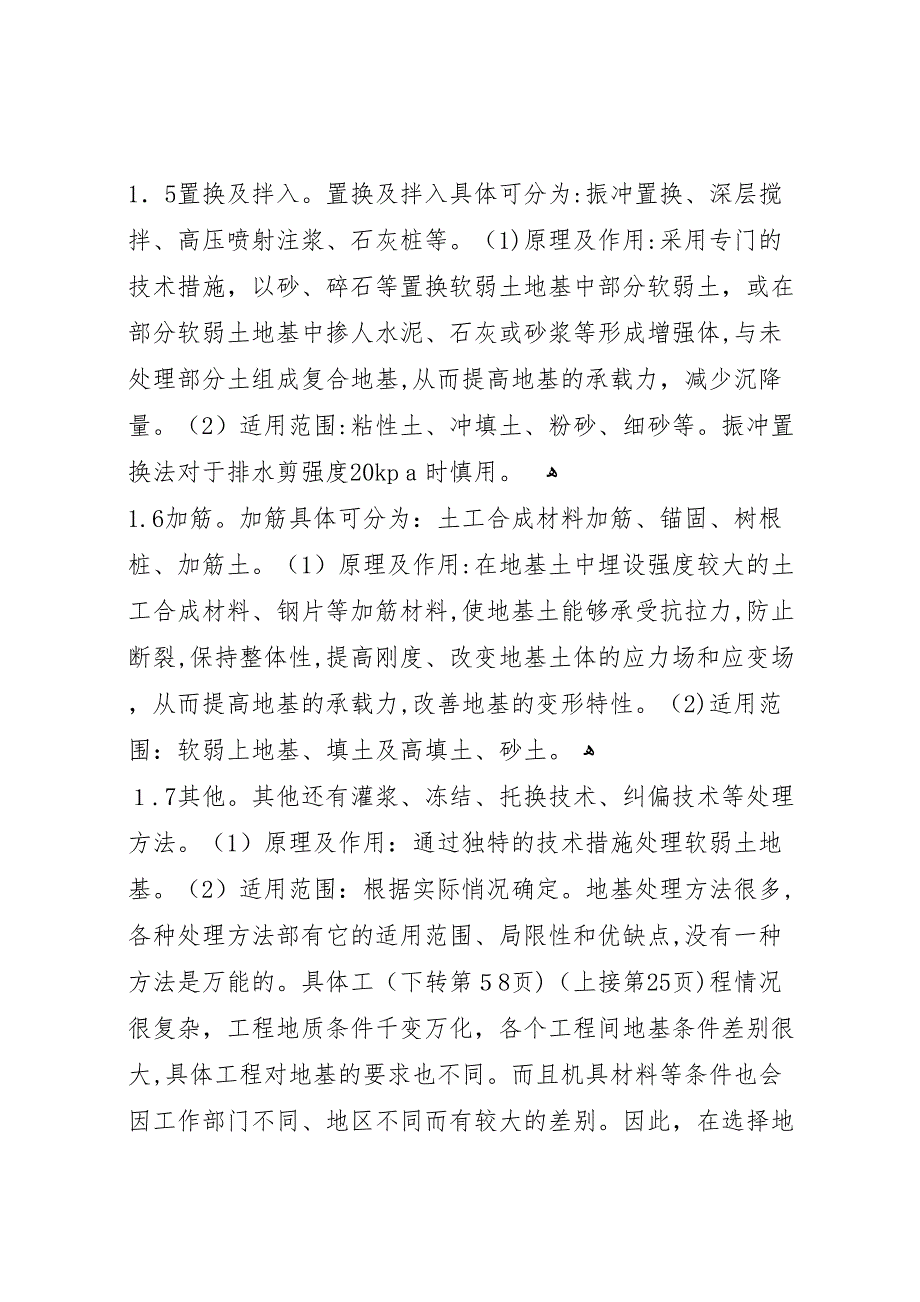 1．5置换及拌入。置换及拌入具体可分为:振冲置换、深层搅
拌、高压喷射注浆、石灰桩等。（1)原理及作用:采用专门的
技术措施，以砂、碎石等置换软弱土地基中部分软弱土，或在
部分软弱土地基中掺人水泥、石灰或砂浆等形成增强体,与未
处理部分土组成复合地基,从而提高地基的承载力，减少沉降
量。（2）适用范围:粘性土、冲填土、粉砂、细砂等。振冲置
换法对于排水剪强度20kpａ时慎用。 ﻫ
1.6加筋。加筋具体可分为：土工合成材料加筋、锚固、树根
桩、加筋土。（1）原理及作用:在地基土中埋设强度较大的土
工合成材料、钢片等加筋材料,使地基土能够承受抗拉力,防止
断裂,保持整体性,提高刚度、改变地基土体的应力场和应变场
，从而提高地基的承载力,改善地基的变形特性。（2)适用范
围：软弱上地基、填土及高填土、砂土。ﻫ
１.7其他。其他还有灌浆、冻结、托换技术、纠偏技术等处理
方法。（1）原理及作用：通过独特的技术措施处理软弱土地
基。（2）适用范围：根据实际悄况确定。地基处理方法很多,
各种处理方法部有它的适用范围、局限性和优缺点,没有一种
方法是万能的。具体工（下转第５8页)（上接第25页)程情况
很复杂，工程地质条件千变万化，各个工程间地基条件差别很
大,具体工程对地基的要求也不同。而且机具材料等条件也会
因工作部门不同、地区不同而有较大的差别。因此，在选择地